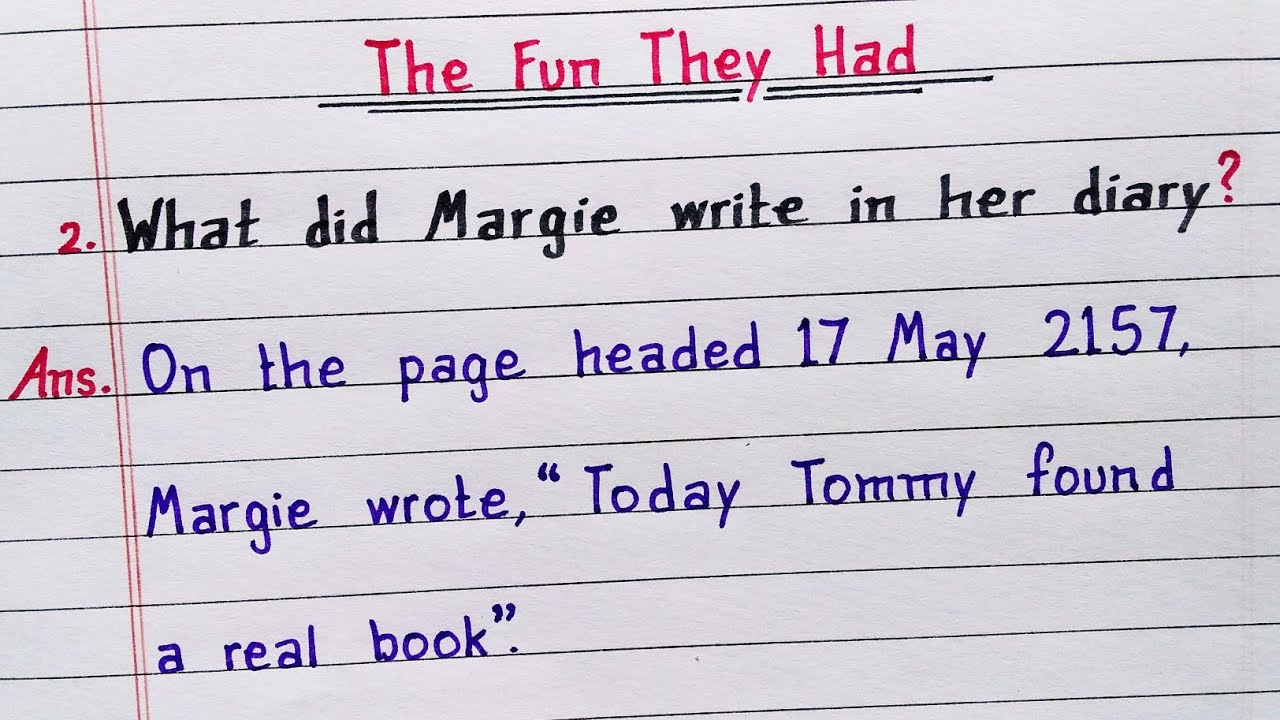 The Fun They Had
2. What did Margie write in her diary?
Ans. On the page headed 17 May 2157,
Margie wrote, “Today Tommy found
a real book”.